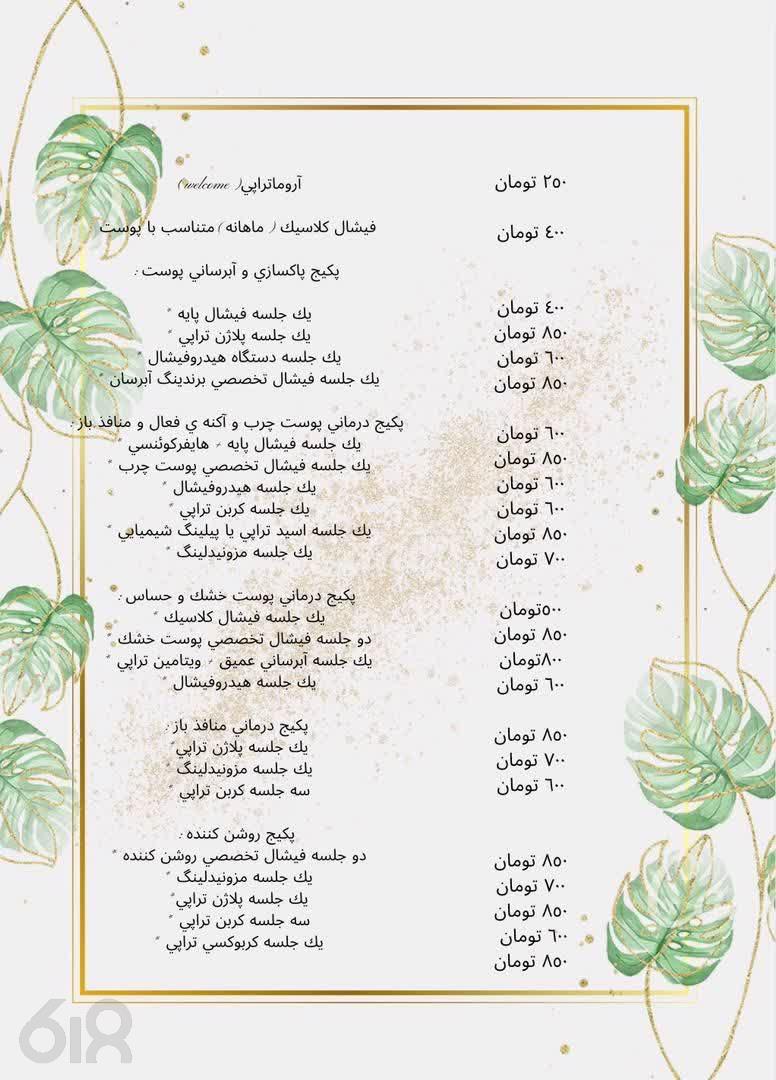 آروماتراپي( welcome)
٢٥٠ تومان
فيشال كلاسيك ( ماهانه ) متناسب با پوست
٤٠٠ تومان
پكيج پاكسازي و آبرساني پوست :
يك جلسه فيشال پايه *
٤٠٠ تومان
يك جلسه پلاژن تراپي *
٨٥٠ تومان
يك جلسه دستگاه هيدروفيشال *
٦٠٠ تومان
يك جلسه فيشال تخصصي برندينگ آبرسان *
٨٥٠ تومان
پكيج درماني پوست چرب و آكنه ي فعال و منافذ باز :
يك جلسه فيشال پايه + هايفركوئنسي *
٦٠٠ تومان
يك جلسه فيشال تخصصي پوست چرب *
٨٥٠ تومان
يك جلسه هيدروفيشال *
٦٠٠ تومان
يك جلسه كربن تراپي *
٦٠٠ تومان
يك جلسه اسيد تراپي يا پيلينگ شيميايي *
٨٥٠ تومان
يك جلسه مزونيدلينگ *
٧٠٠ تومان
پكيج درماني پوست خشك و حساس :
يك جلسه فيشال كلاسيك *
٥٠٠تومان
دو جلسه فيشال تخصصي پوست خشك *
٨٥٠ تومان
يك جلسه آبرساني عميق + ويتامين تراپي *
٨٠٠تومان
يك جلسه هيدروفيشال *
٦٠٠ تومان
پكيج درماني منافذ باز :
يك جلسه پلاژن تراپي*
٨٥٠ تومان
يك جلسه مزونيدلينگ *
٧٠٠ تومان
سه جلسه كربن تراپي *
٦٠٠ تومان
پكيج روشن كننده :
دو جلسه فيشال تخصصي روشن كننده *
٨٥٠ تومان
يك جلسه مزونيدلينگ *
٧٠٠ تومان
يك جلسه پلاژن تراپي*
٨٥٠ تومان
سه جلسه كربن تراپي *
٦٠٠ تومان
يك جلسه كربوكسي تراپي *
٨٥٠ تومان
618